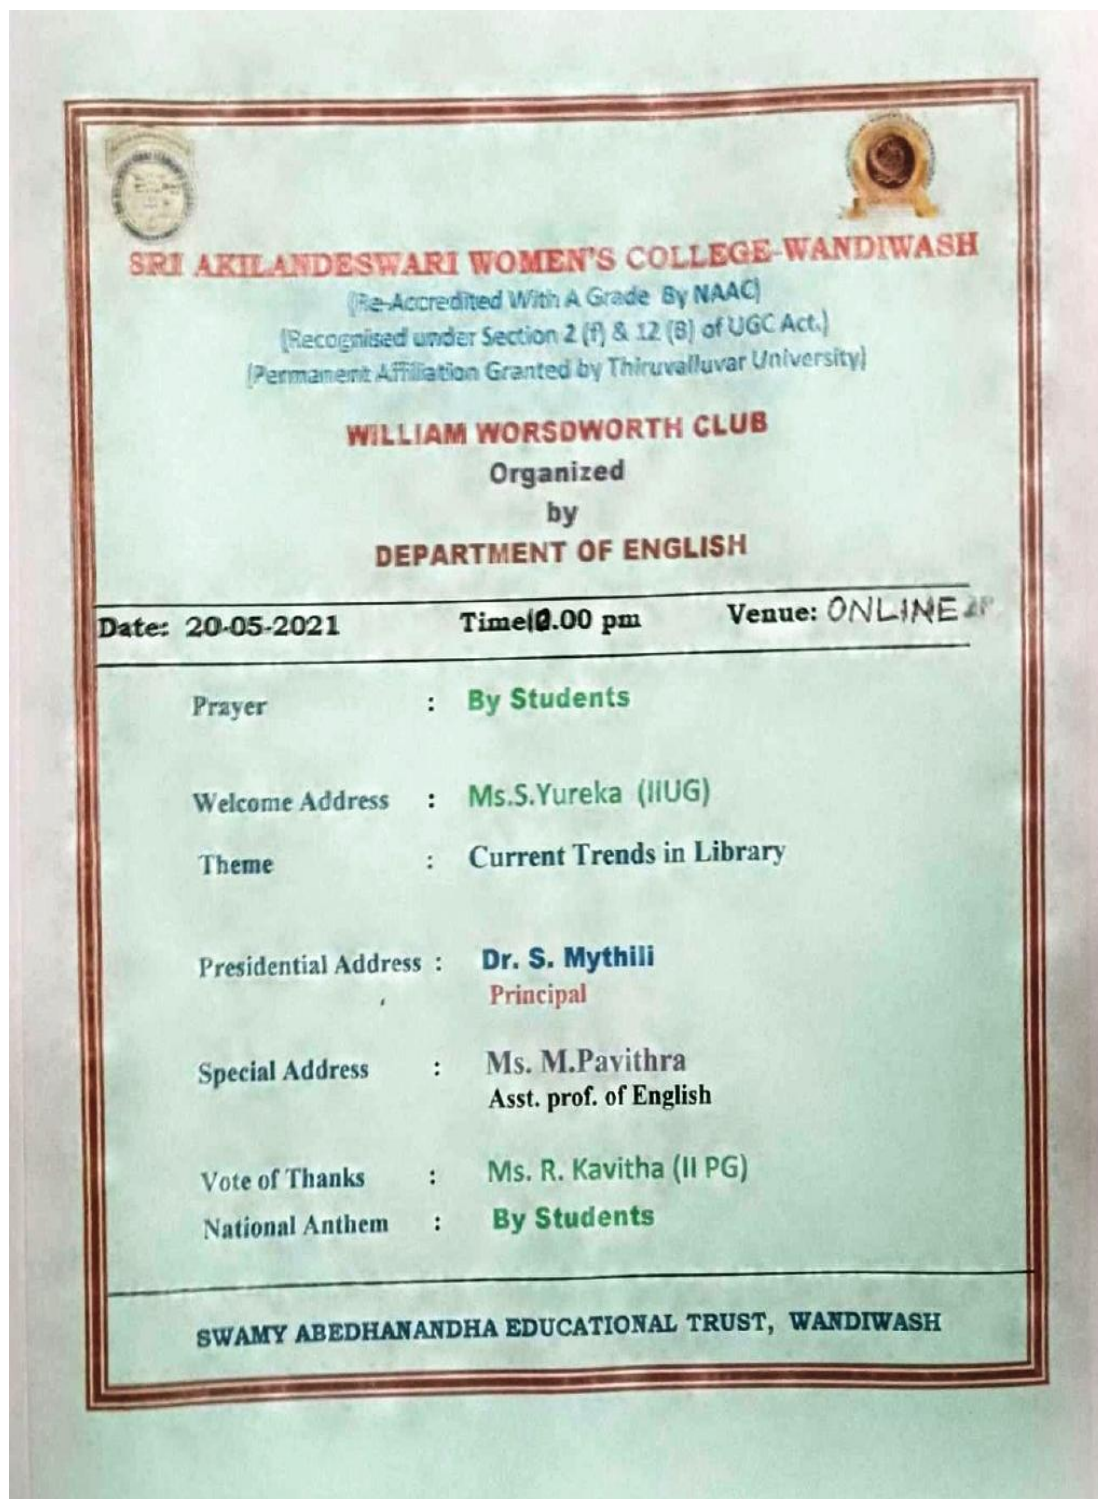 SRI AKILANDESWARI WOMEN'S COLLEGE-WANDIWASH
(Re-Accredited With A Grade By NAAC)
(Recognised under Section 2 (f) & 12 (B) of UGC Act.)
(Permanent Affiliation Granted by Thiruvalluvar University)
WILLIAM WORSDWORTH CLUB
Organized
by
DEPARTMENT OF ENGLISH
Date: 20-05-2021 Time .00 pm Venue: ONLINE
Prayer : By Students
Welcome Address : Ms.S.Yureka (IIUG)
Theme : Current Trends in Library
Presidential Address : Dr. S. Mythili
Principal
Special Address : Ms. M.Pavithra
Asst. prof. of English
Vote of Thanks : Ms. R. Kavitha (II PG)
National Anthem : By Students
SWAMY ABEDHANANDHA EDUCATIONAL TRUST, WANDIWASH